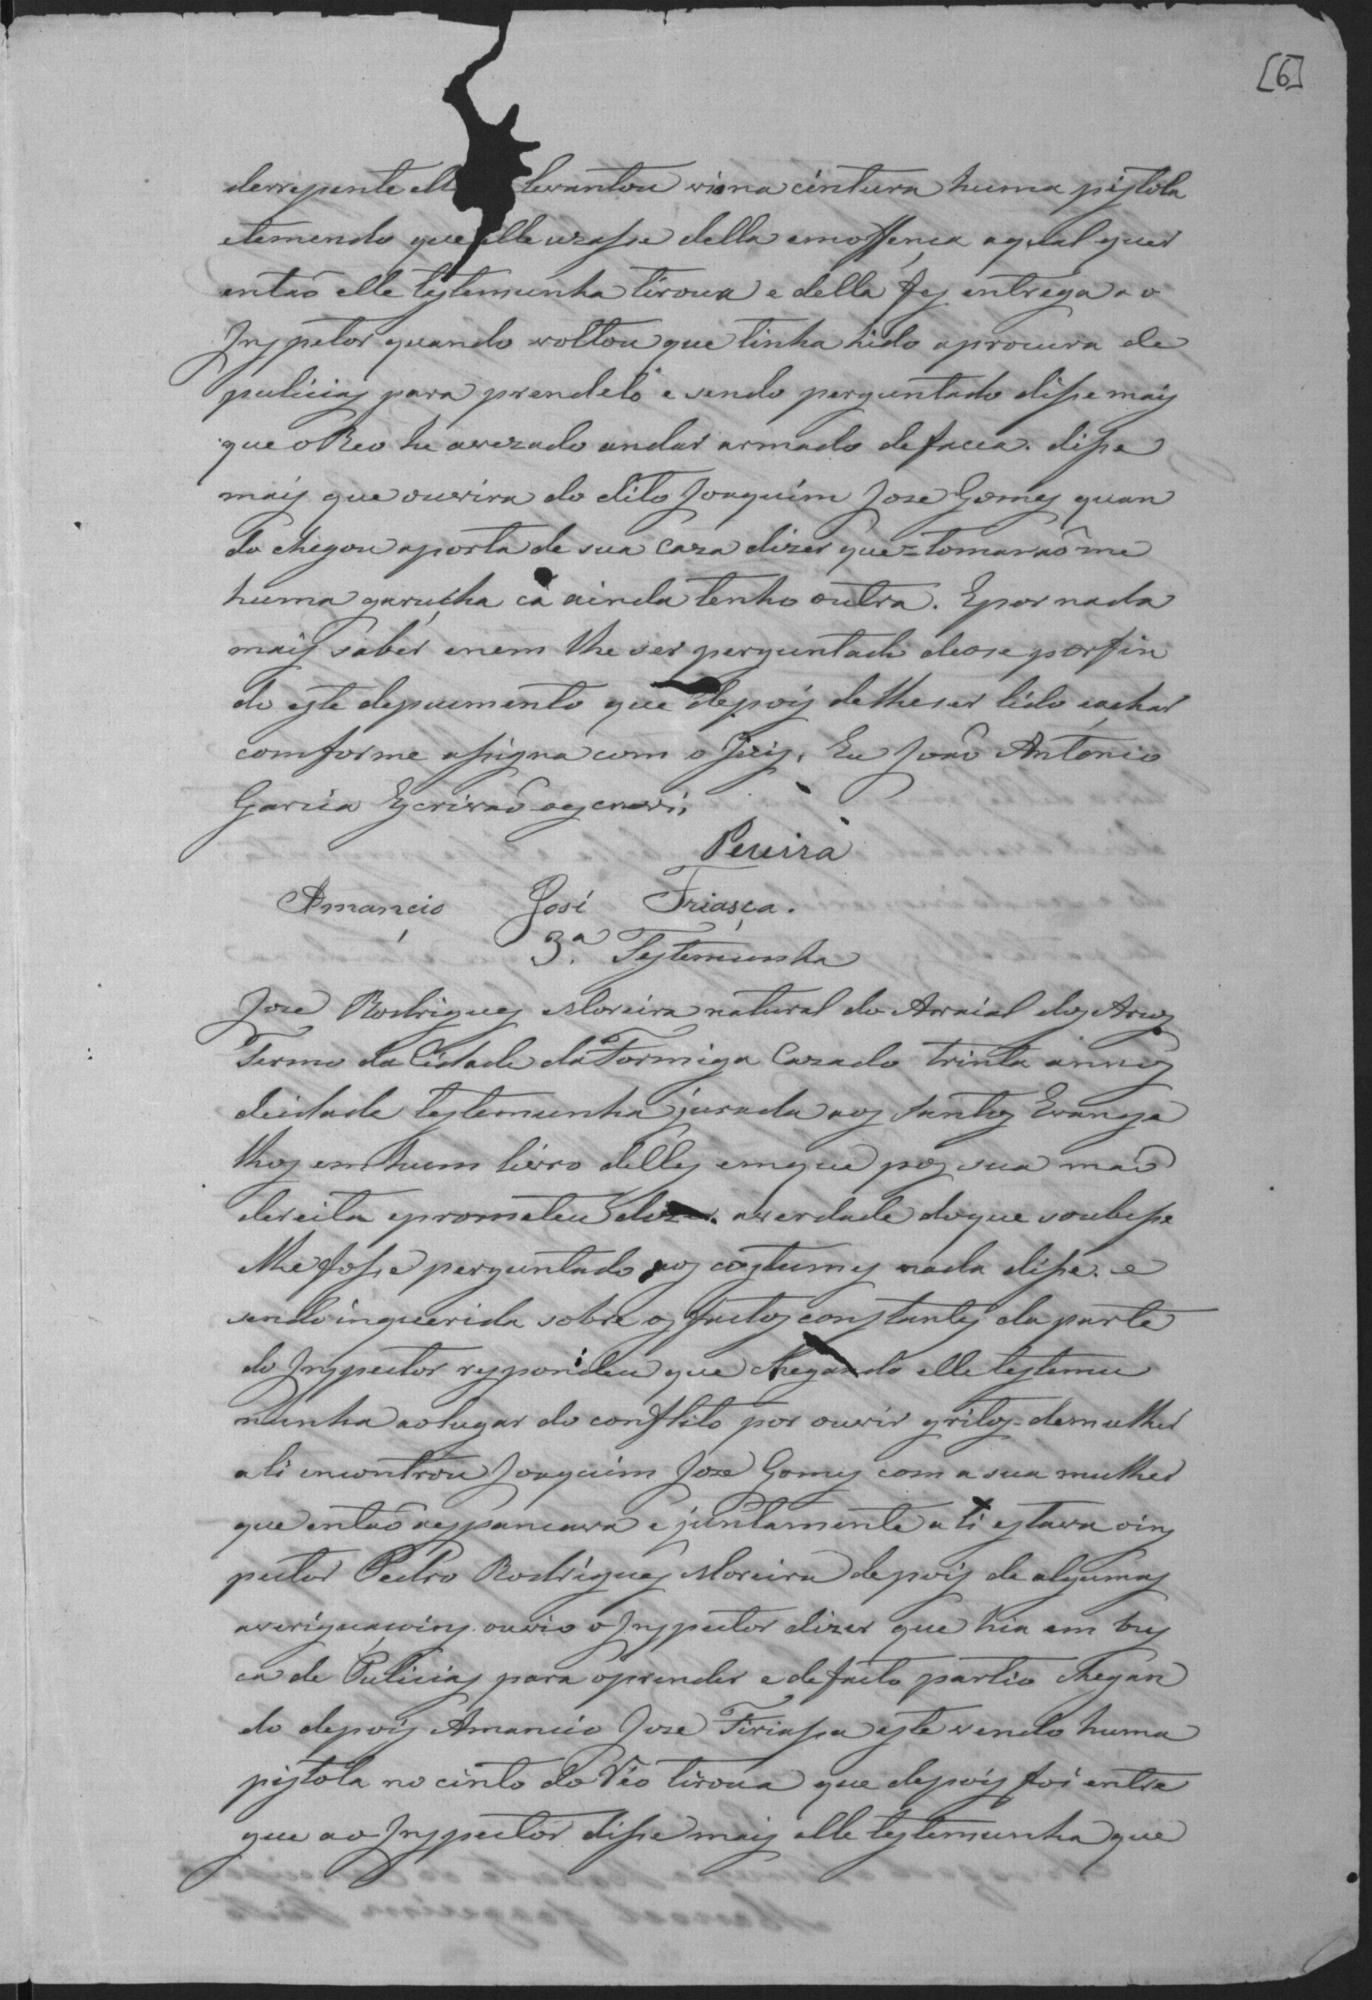 [6]
derrepente elle levantou vio na cintura huma pistola
etemendo que elle uzasse della emoffença aqualquer
entaõ elle testemunha tirou a e della fes entrega a o
Inspetor quando voltou que tinha hido aprocura de
pulicias para prendelo e sendo perguntado disse mais
que o Reo he avezado andar armado defacca. disse
mais que ouvira do dito Joaquim Jose Gomes quan
do chegou aporta de sua caza dizer que = tomaraõ me
huma garucha cá ainda tenho outra. Epor nada
mais saber enem lhe ser perguntado deose porfin
do este depuimento que depois delheser lido eachar
comforme assigna com o Juis. Eu Joaõ Antonio
Garcia Escrivaõ oescrevi,
Pereira
Amancio José Friaça.
3.ª Testemunha
Jose Rodrigues Moreira natural do Arraial dos Arcos
Termo da Cidade da Formiga Cazado trinta annos
deidade testemunha jurada aos Santos Evange
lhos em hum livro delles emque pos sua maõ
dereita eprometeu dizer averdade doque soubesse
elhe fosse perguntado aos costumes nada disse. e
sendo inquerida sobre os factos constantes da parte
do Inspector respondeu que chegando elle testemu
nunha aolugar do conflito por ouvir gritos demulher
ali encontrou Joaquim Jose Gomes com a sua mulher
que entaõ aespancava e juntamente a li estava oins
pector Pedro Rodrigues Moreira depois de algumas
averiguaçoins ouvio o Inspector dizer que hia em bus
ca de Pulicias para oprender e defacto partio chegan
do depois Amancio Jose Firiassa este vendo huma
pistola no cinto do Reo tiroua que depois foi entre
gue ao Inspector disse mais elle testemunha que